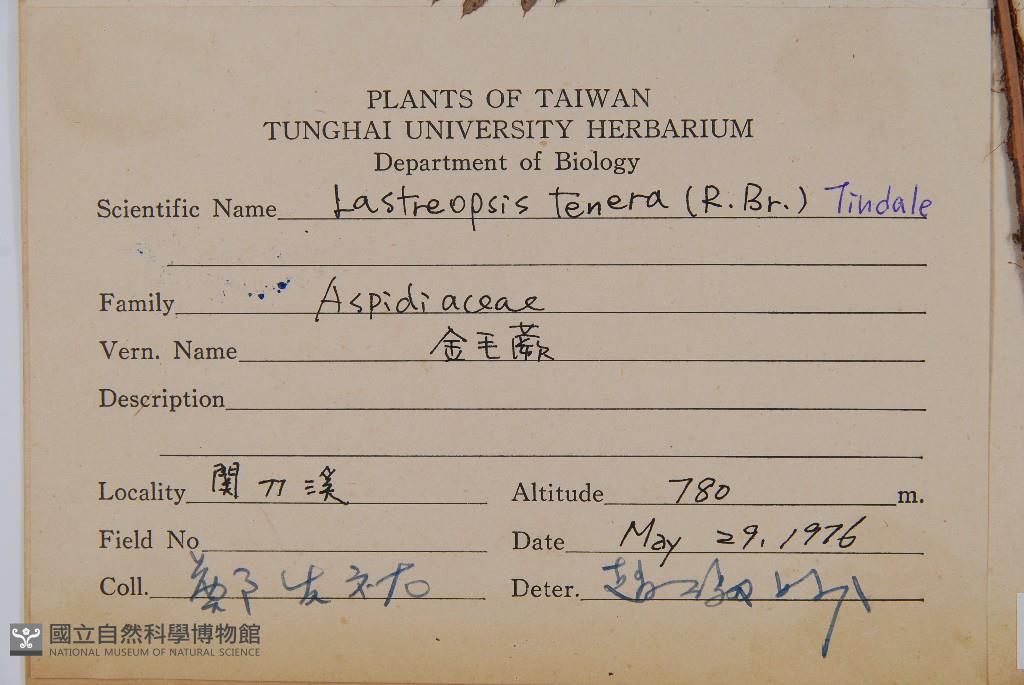 PLANTS OF TAIWAN
TUNGHAI UNIVERSITY HERBARIUM
Department of Biology
Scientific Name Lastreopsis tenera (R.Br.) Tindale
Family Aspidiaceae
Vern. Name 金毛蕨
Description
Locality 関刀溪 Altitude 780 m.
Field No Date May 29, 1976
Coll. Deter.
國立自然科學博物館
NATIONAL MUSEUM OF NATURAL SCIENCE